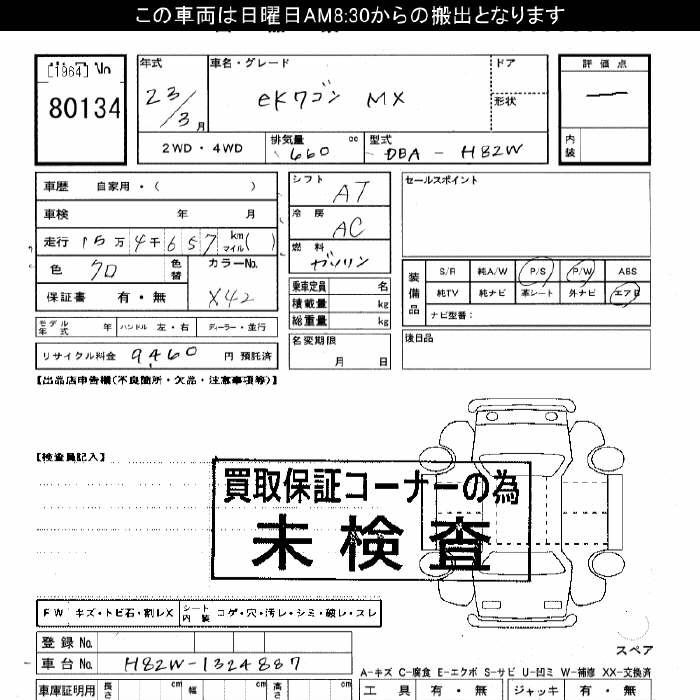 この車両は日曜日AM8:30からの搬出となります
[1964]
80134
年式 車名・グレード ドア 評価点
23/3月 eKワゴン MX 形状
2WD・4WD 排気量 cc 660 型式 DBA-H82W 内装
車歴 自家用・( )
車検 年 月
走行 15万4千657 km マイル( )
色 クロ 色替 カラーNo. X42
保証書 有・無
モデル年式 年 ハンドル 左・右 ディーラー・並行
リサイクル料金 9,460 円 預託済
シフト AT
冷房 AC
燃料 ガソリン
乗車定員 名
積載量 kg
総重量 kg
名変期限 月 日
セールスポイント
装備品 S/R 純A/W P/S P/W ABS
純TV 純ナビ 革シート 外ナビ エアB
ナビ型番:
後日品
【出品店申告欄(不良箇所・欠品・注意事項等)】
【検査員記入】
買取保証コーナーの為
未検査
FW キズ・トビ石・割レX シート内装 コゲ・穴・汚レ・シミ・破レ・スレ
登録No.
車台No. H82W-1324887
スペア
A-キズ C-腐食 E-エクボ S-サビ U-凹ミ W-補修 XX-交換済
車庫証明用 長さ cm 幅 cm 高さ cm 工具 有・無 ジャッキ 有・無